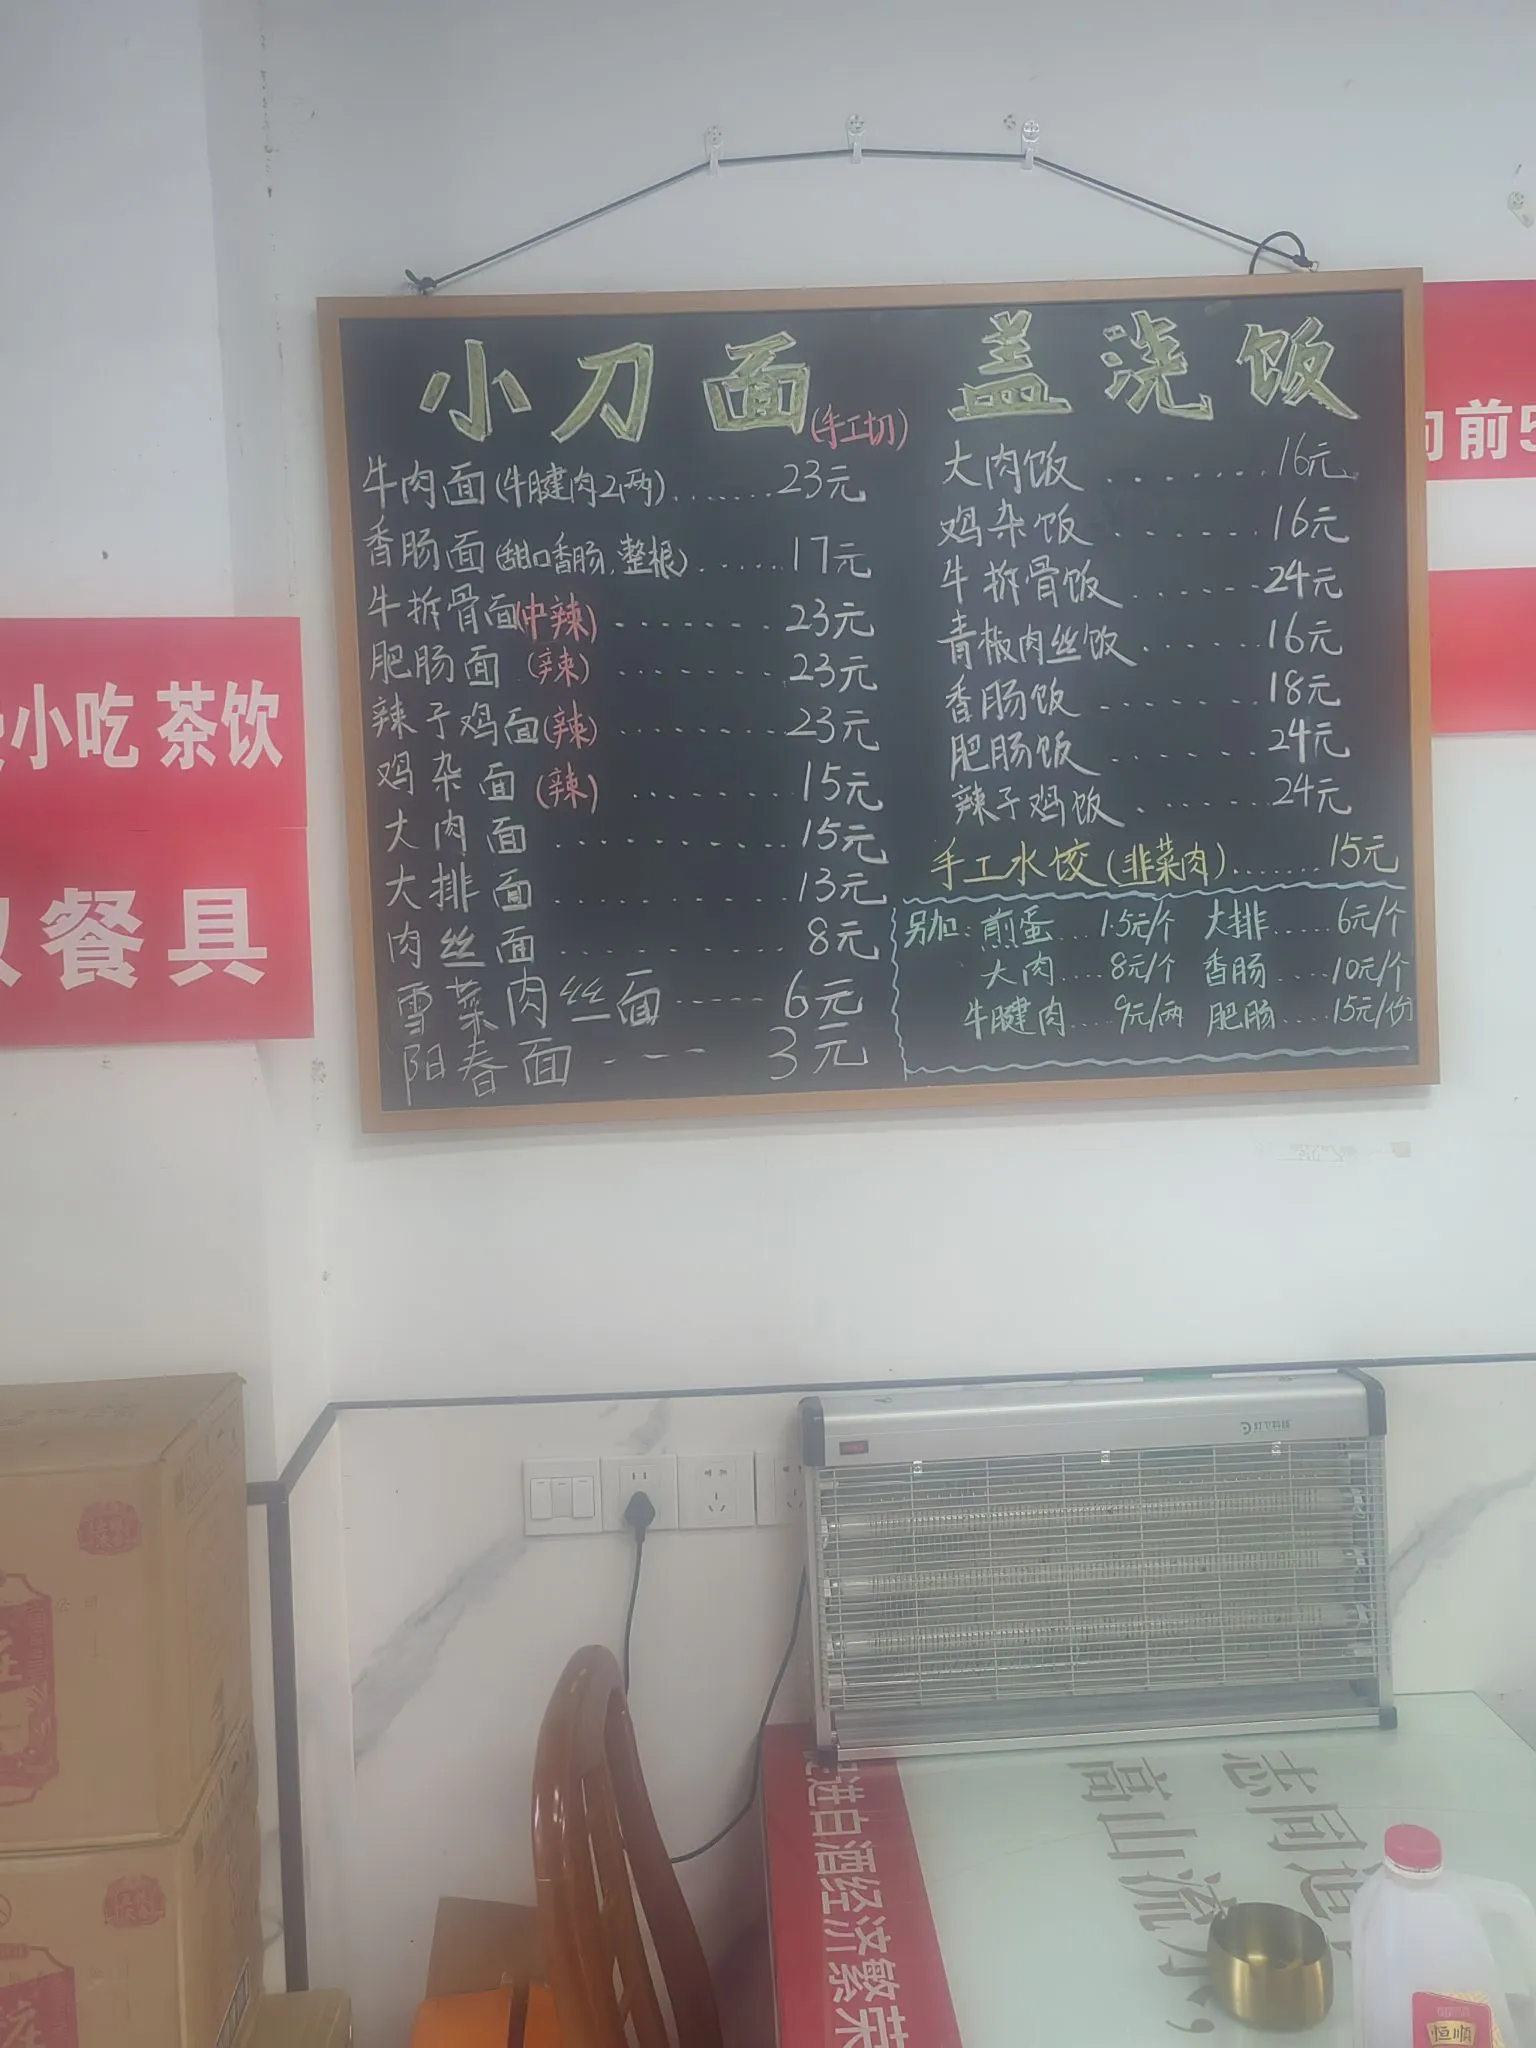 小刀面(手工切)
牛肉面(牛腱肉2两).......23元
香肠面(甜口香肠,整根)......17元
牛拆骨面(中辣).......23元
肥肠面(辣).......23元
辣子鸡面(辣).......23元
鸡杂面(辣).......15元
大肉面..........15元
大排面..........13元
肉丝面..........8元
雪菜肉丝面-----6元
阳春面----3元
盖浇饭
大肉饭.......16元
鸡杂饭.......16元
牛拆骨饭......24元
青椒肉丝饭......16元
香肠饭.......18元
肥肠饭.......24元
辣子鸡饭......24元
手工水饺(韭菜肉)......15元
另加:煎蛋...1.5元/个 大排....6元/个
大肉....8元/个 香肠....10元/个
牛腱肉....9元/两 肥肠....15元/份
小吃 茶饮
餐具
前5
进白酒经济繁荣
志同道
高山流水,
恒顺